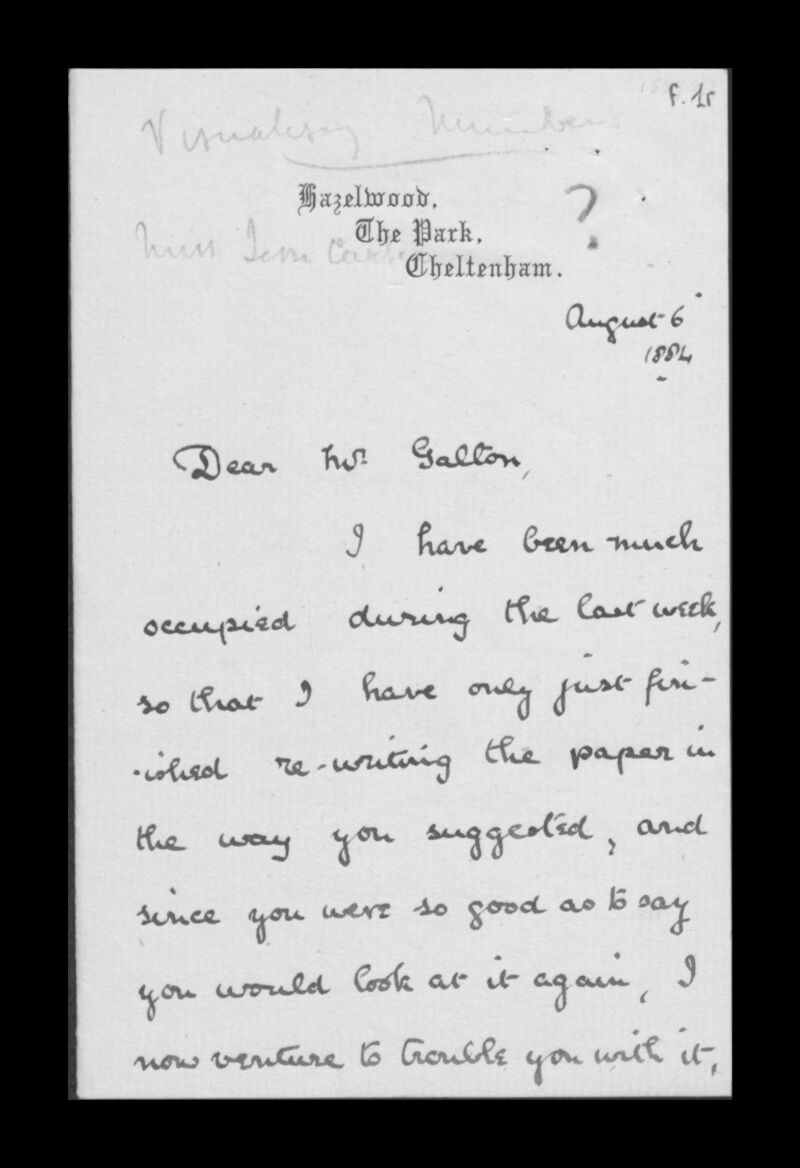 f.1r
Visualising Numbers
Hazelwood,
The Park,
Cheltenham.
?
Miss
August 6
1884
Dear Mr. Galton,
I have been much
occupied during the last week,
so that I have only just fin-
-ished re-writing the paper in
the way you suggested, and
since you were so good as to say
you would look at it again, I
now venture to trouble you with it,